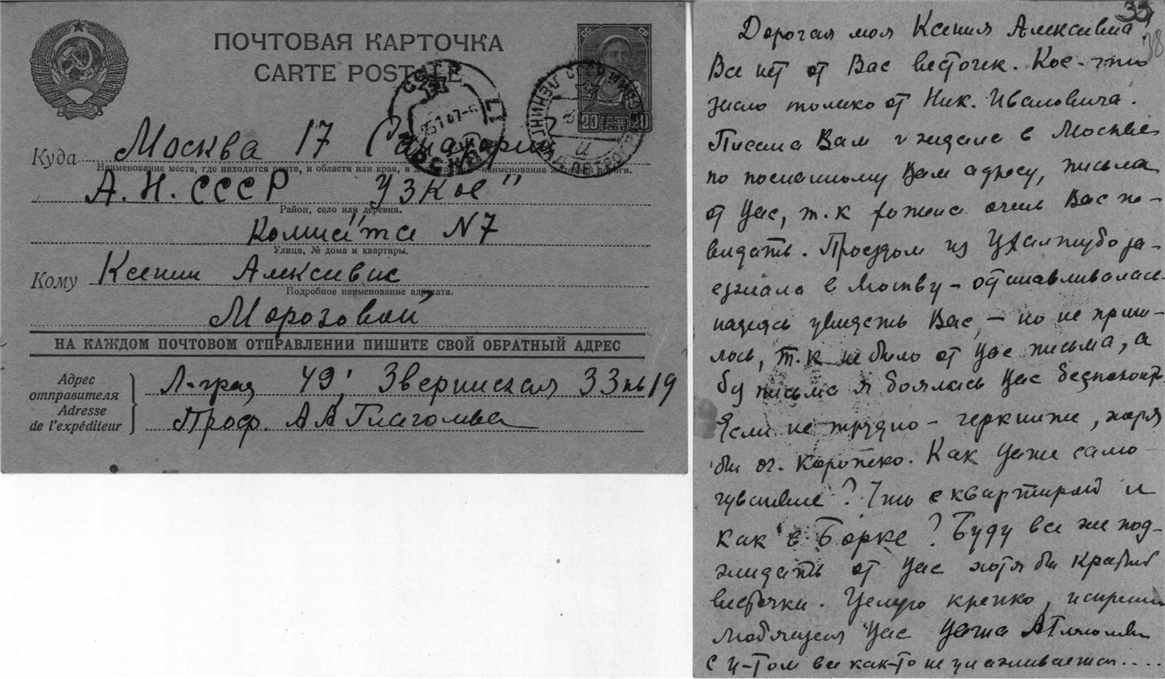 ПОЧТОВАЯ КАРТОЧКА
CARTE POSTALE
Куда Москва 17 Санаторий
Наименование места, где находится почта, и области или края, а для наименование дороги.
А.Н. СССР "Узкое"
Район, село или деревня.
Комната N7
Улица, № дома и квартиры.
Кому Ксении Алексиевне
Подробное наименование адресата.
Морозовой
НА КАЖДОМ ПОЧТОВОМ ОТПРАВЛЕНИИ ПИШИТЕ СВОЙ ОБРАТНЫЙ АДРЕС
Адрес отправителя
Adresse de l'expéditeur
Л-град 49, Зверинская 33 кв 19
Проф. А А Глаголева
20
33
38
Дорогая моя Ксения Алексивна,
Все нет от Вас весточек. Кое-что
знаю только от Ник. Ивановича.
Писала Вам и ждала в Москве
по посланному Вам адресу, письма
от Вас, т.к очень Вас по-
видать. Проездом из Цхалтубо за-
езжала в Москву - останавливалась
надеясь увидеть Вас, - но не приш-
лось, т.к не было от Вас письма, а
без письма я боялась Вас беспокоить.
Если не трудно - черкните, хотя
бы оч. коротко. Как Ваше само-
чувствие? Что с квартирой и
как в Борке? Буду все же под-
жидать от Вас хотя бы краткой
весточки. Целую крепко, искренно
любящая Вас Ваша А Глаголева
С и-том все как-то не улаживается....